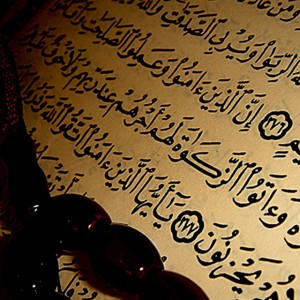 وَمَنْ عَادَ
ٱلرِّبَوٰا۟ وَيُرْبِى ٱلصَّدَقَـٰتِ وَٱللَّهُ
٢٧٦ إِنَّ ٱلَّذِينَ ءَامَنُوا۟ وَعَمِلُوا۟ ٱلصَّـٰلِحَـٰتِ
وَءَاتَوُا۟ ٱلزَّكَوٰةَ لَهُمْ أَجْرُهُمْ عِندَ رَبِّهِمْ وَلَا خَوْفٌ عَلَيْهِمْ
يَحْزَنُونَ ٢٧٧ يَـٰٓأَيُّهَا ٱلَّذِينَ ءَامَنُوا۟ ٱتَّقُوا۟ ٱللَّهَ وَذَرُوا۟